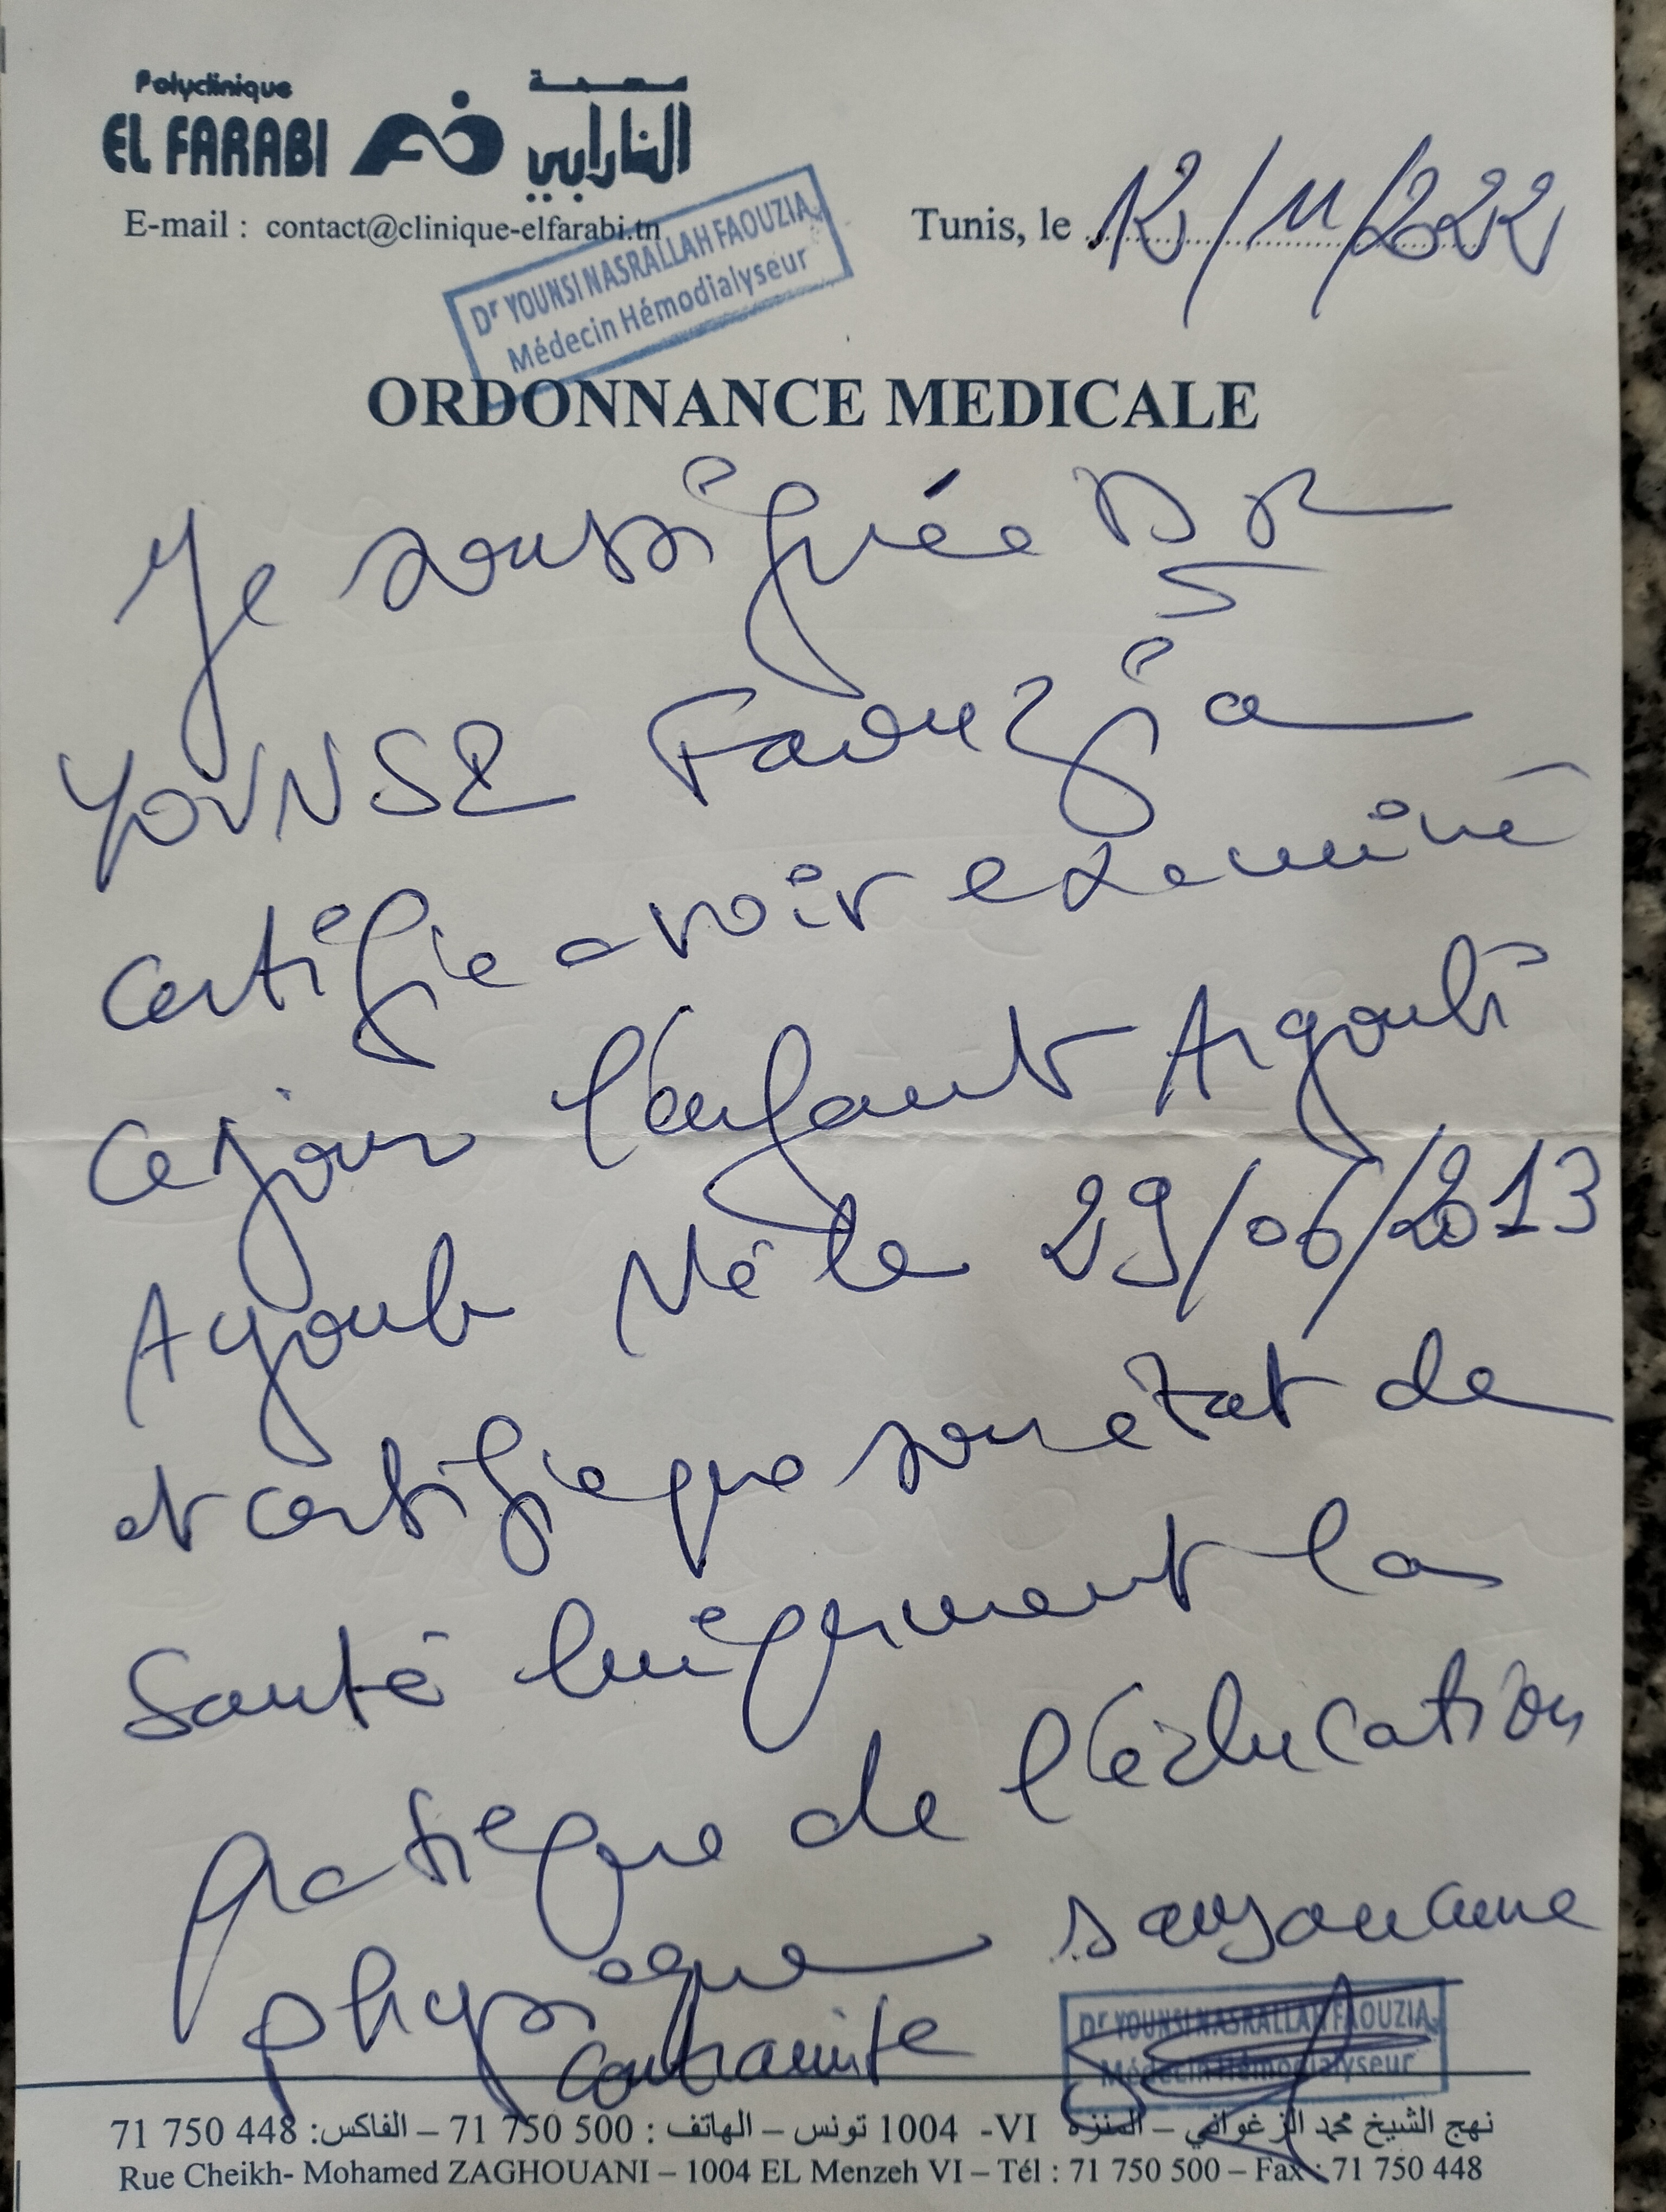 Polyclinique
EL FARABI
مصحة
الفارابي
E-mail : contact@clinique-elfarabi.tn
Tunis, le 12/11/2022
Dr YOUNSI NASRALLAH FAOUZIA
Médecin Hémodialyseur
ORDONNANCE MEDICALE
Je soussignée DR
YOUNSI Faouzia
certifie avoir examiné
ce jour l'enfant Argoubi
Ayoub Né le 29/06/2013
et certifie que son état de
Santé lui permet la
pratique de l'éducation
physique sans aucune
contrainte
Dr YOUNSI NASRALLAH FAOUZIA
Médecin Hémodialyseur
نهج الشيخ محمد الزغواني – المنزه VI- 1004 تونس – الهاتف : 500 750 71 – الفاكس: 448 750 71
Rue Cheikh- Mohamed ZAGHOUANI – 1004 EL Menzeh VI – Tél : 71 750 500 – Fax : 71 750 448